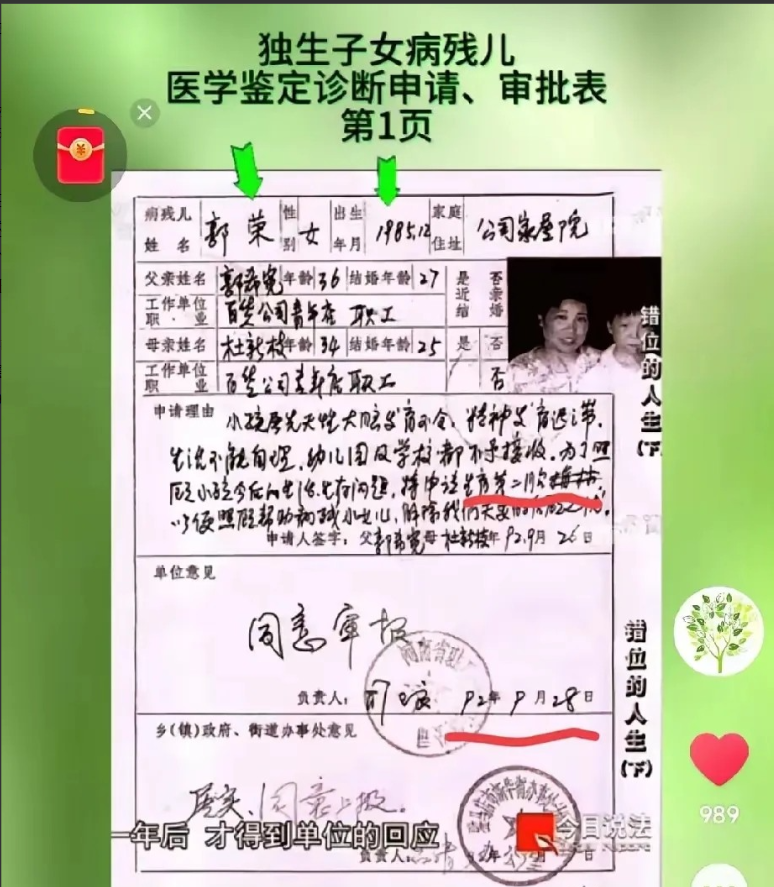 独生子女病残儿
医学鉴定诊断申请、审批表
第1页
病残儿姓名 郭荣 性别 女 出生年月 1985.12 家庭住址 公司家属院
父亲姓名 郭希宽 年龄 36 结婚年龄 27 是否近亲结婚
工作单位职业 百货公司青年店 职工
母亲姓名 杜新枝 年龄 34 结婚年龄 25 是 否
工作单位职业 百货公司青年店 职工 否
申请理由 小孩属先天性大脑发育不全,精神发育迟滞,
生活不能自理,幼儿园及学校都不予接收,为了照
顾小孩今后的生活生存问题,特申请生育第二胎指标,
以便照顾帮助病残小女儿,解除我们夫妻的后顾之忧。
申请人签字:父 郭希宽 母 杜新枝 92年9月26日
单位意见
同意审报
负责人: 92年9月28日
乡(镇)政府、街道办事处意见
属实,同意上报。
负责人:
错位的人生(下)
错位的人生(下)
一年后 才得到单位的回应
今日说法
989